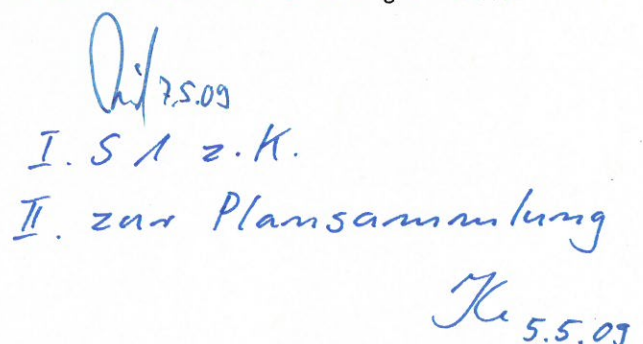 7.5.09
I. S 1 z.K.
II. zur Plansammlung
5.5.09